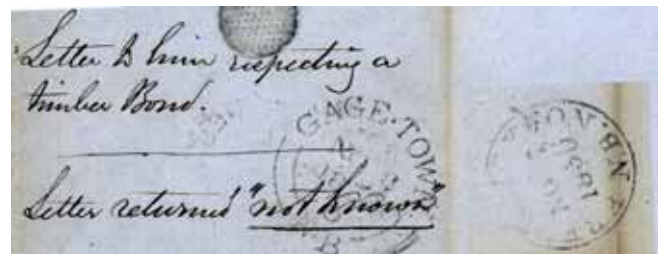 Letter to him respecting a
timber Bond.
Letter returned "not known"
GAGE-TOWN
B
N.B.
1850